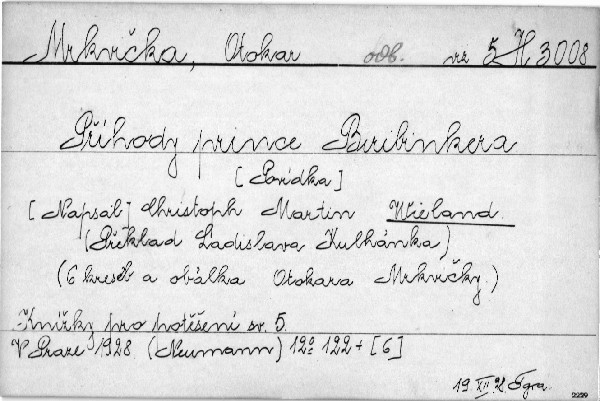 Mrkvička, Otokar odb. vz 5 H 3008
Příhody prince Biribinkera
[Povídka]
[Napsal] Christoph Martin Wieland.
(Překlad Ladislava Kulhánka)
(6 kreseb a obálka Otokara Mrkvičky.)
Knížky pro potěšení sv. 5.
V Praze 1928 (Neumann) 12º 122 + [6]
19. XII. 28.
2229